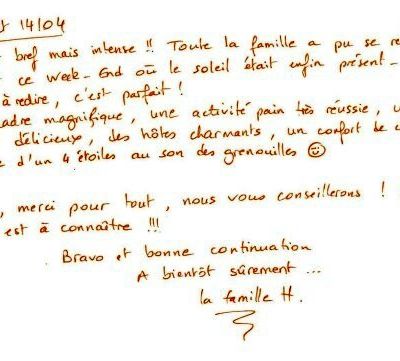 14/04
bref mais intense !! Toute la famille a pu se re
ce week-End où le soleil était enfin présent -
à redire, c'est parfait !
adre magnifique, une activité pain très réussie, u
délicieux, des hôtes charmants, un confort de c
d'un 4 étoiles au son des grenouilles ☺
, merci pour tout, nous vous conseillerons !
est à connaître !!!
Bravo et bonne continuation
A bientôt sûrement ...
la famille H.